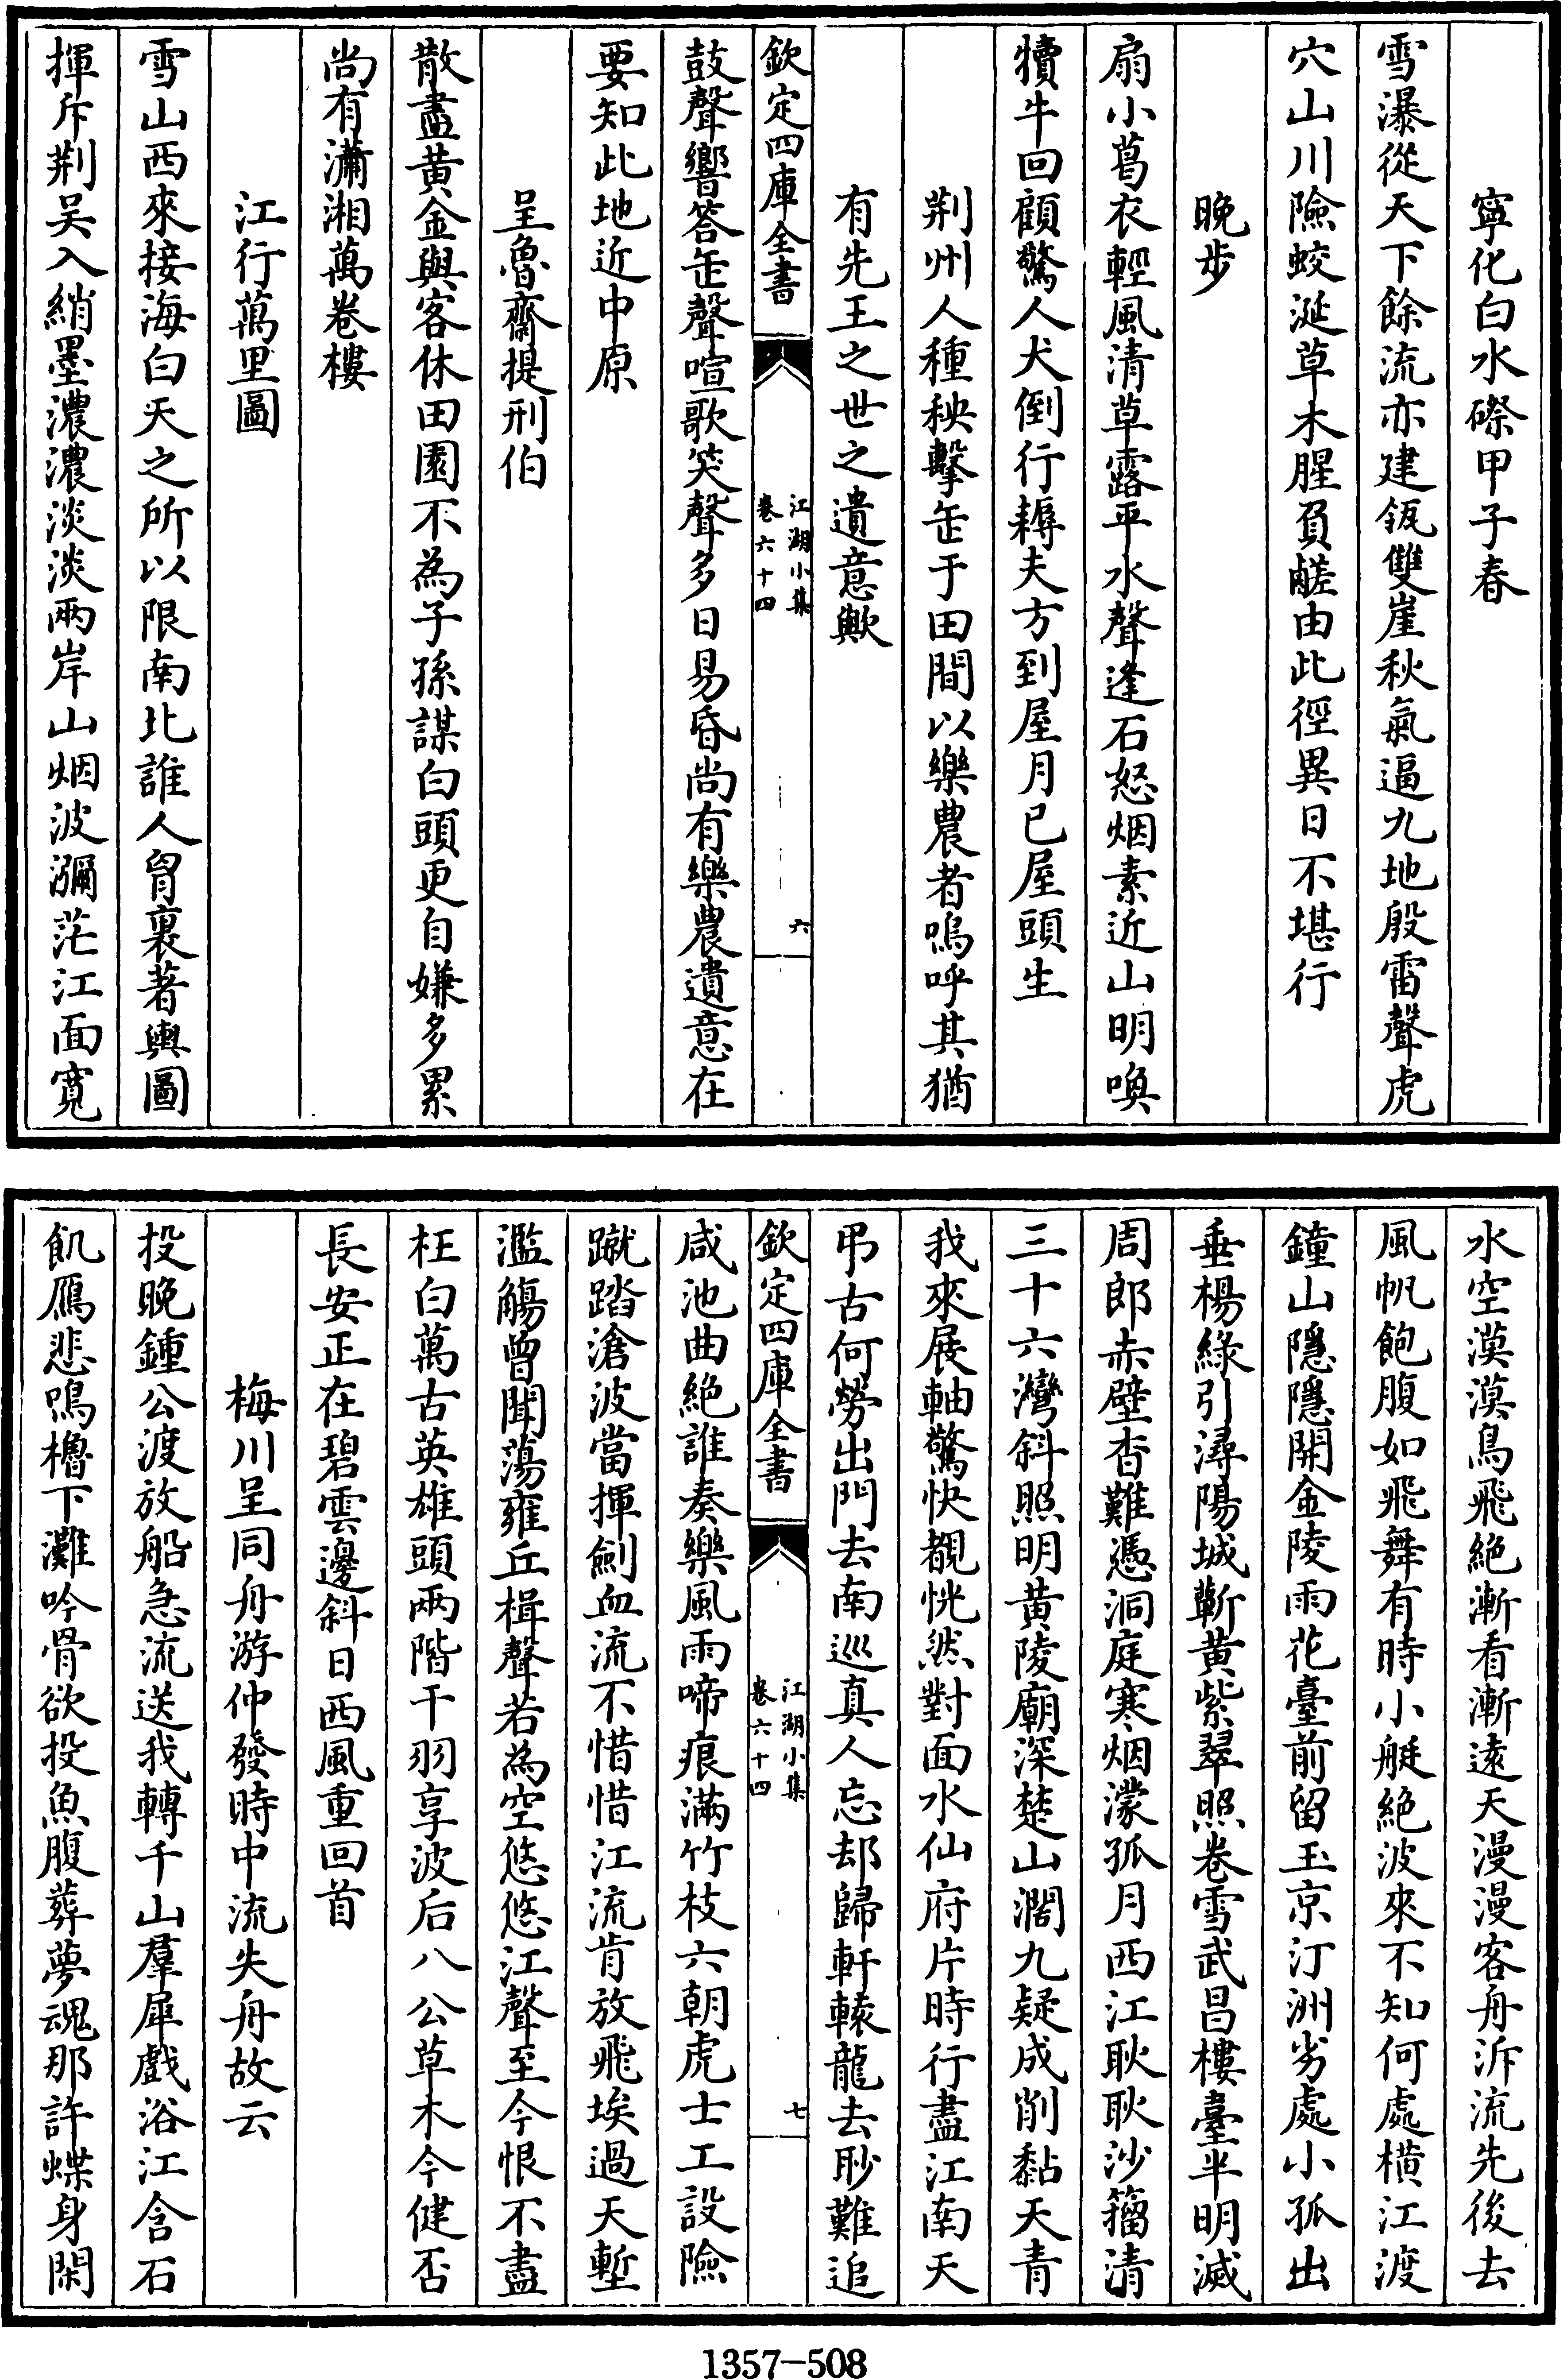 寧化白水磜甲子春
雪瀑從天下餘流亦建瓴雙崖秋氣逼九地殷雷聲虎
穴山川險蛟涎草木腥負鹺由此徑異日不堪行
晚步
扇小葛衣輕風清草露平水聲逢石怒烟素近山明喚
犢牛回顧驚人犬倒行耨夫方到屋月已屋頭生
荆州人種秧擊缶于田間以樂農者嗚呼其猶
有先王之世之遺意歟
欽定四庫全書
江湖小集
卷六十四
六
鼓聲響答缶聲喧歌笑聲多日易昏尚有樂農遺意在
要知此地近中原
呈魯齋提刑伯
散盡黄金與客休田園不為子孫謀白頭更自嫌多累
尚有瀟湘萬卷樓
江行萬里圖
雪山西來接海白天之所以限南北誰人胷裏著輿圖
揮斥荆吴入綃墨濃濃淡淡兩岸山烟波瀰茫江面寛
水空漠漠鳥飛絶漸看漸遠天漫漫客舟泝流先後去
風帆飽腹如飛舞有時小艇絶波來不知何處横江渡
鐘山隱隱開金陵雨花臺前留玉京汀洲劣處小孤出
垂楊綠引潯陽城蘄黄紫翠照卷雪武昌樓臺半明滅
周郎赤壁杳難憑洞庭寒烟濛孤月西江耿耿沙籀清
三十六灣斜照明黄陵廟深楚山濶九疑成削黏天青
我來展軸驚快覩恍然對面水仙府片時行盡江南天
弔古何勞出門去南巡真人忘却歸軒轅龍去眇難追
欽定四庫全書
江湖小集
卷六十四
七
咸池曲絶誰奏樂風雨啼痕滿竹枝六朝虎士工設險
蹴踏滄波當揮劍血流不惜惜江流肯放飛埃過天塹
濫觴曾聞蕩雍丘楫聲若為空悠悠江聲至今恨不盡
枉白萬古英雄頭兩階干羽享波后八公草木今健否
長安正在碧雲邊斜日西風重回首
梅川呈同舟游仲發時中流失舟故云
投晚鍾公渡放船急流送我轉千山羣犀戲浴江含石
飢鴈悲鳴櫓下灘吟骨欲投魚腹葬夢魂那許蝶身閑
1357-508